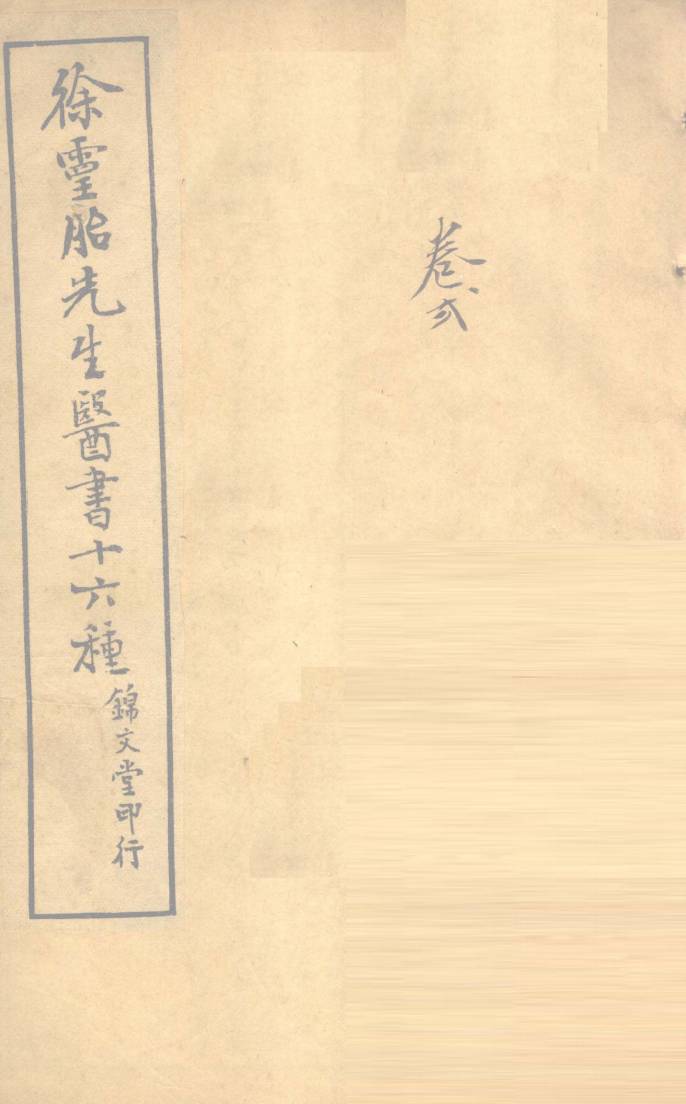 卷弍
徐𩃏胎先生醫書十六種
錦文堂印行